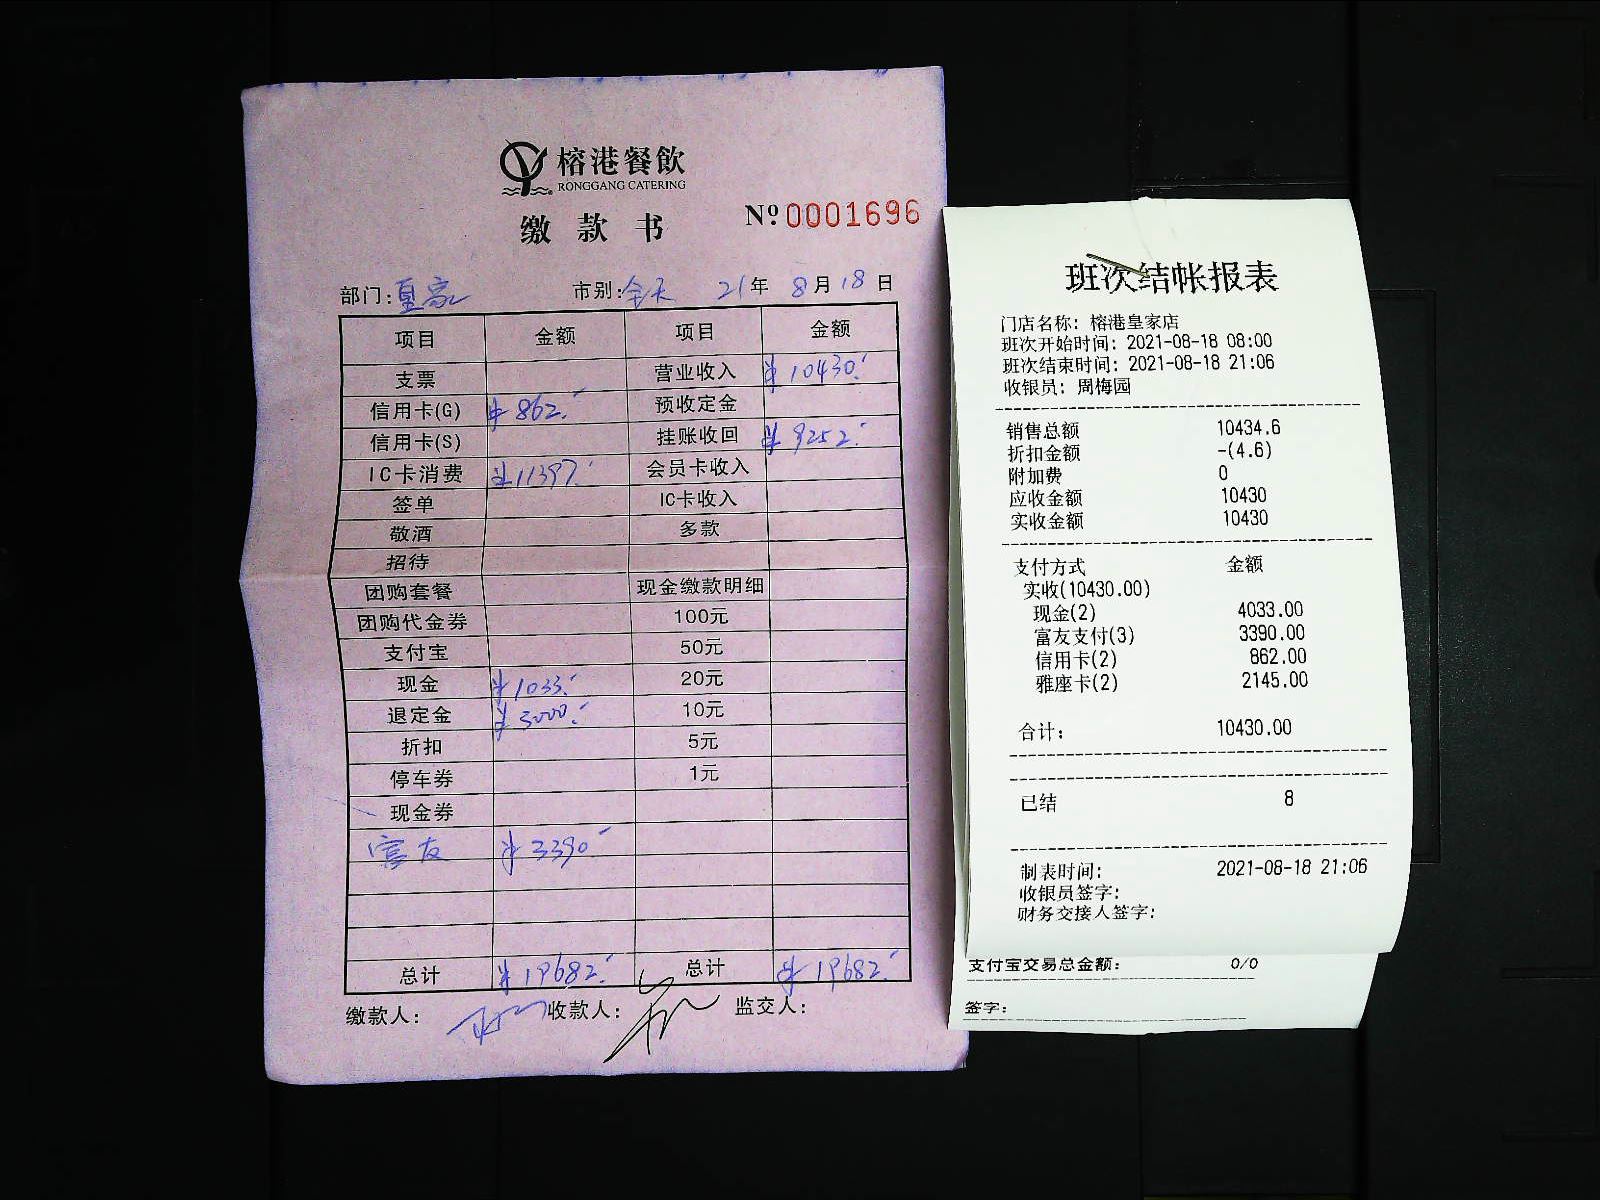 榕港餐飲
RONGGANG CATERING
缴款书
Nº 0001696
部门:皇家 市别:全天 21年 8月18日
项目 金额 项目 金额
支票 营业收入 ¥10430.-
信用卡(G) ¥862.- 预收定金
信用卡(S) 挂账收回 ¥9252.-
IC卡消费 ¥11397.- 会员卡收入
签单 IC卡收入
敬酒 多款
招待
团购套餐 现金缴款明细
团购代金券 100元
支付宝 50元
现金 ¥1033.- 20元
退定金 ¥3000.- 10元
折扣 5元
停车券 1元
现金券
富友 ¥3390.-
总计 ¥19682.- 总计 ¥19682.-
缴款人: 收款人: 监交人:
班次结帐报表
门店名称: 榕港皇家店
班次开始时间: 2021-08-18 08:00
班次结束时间: 2021-08-18 21:06
收银员: 周梅园
销售总额 10434.6
折扣金额 -(4.6)
附加费 0
应收金额 10430
实收金额 10430
支付方式 金额
实收(10430.00)
现金(2) 4033.00
富友支付(3) 3390.00
信用卡(2) 862.00
雅座卡(2) 2145.00
合计: 10430.00
已结 8
制表时间: 2021-08-18 21:06
收银员签字:
财务交接人签字:
支付宝交易总金额: 0/0
签字: